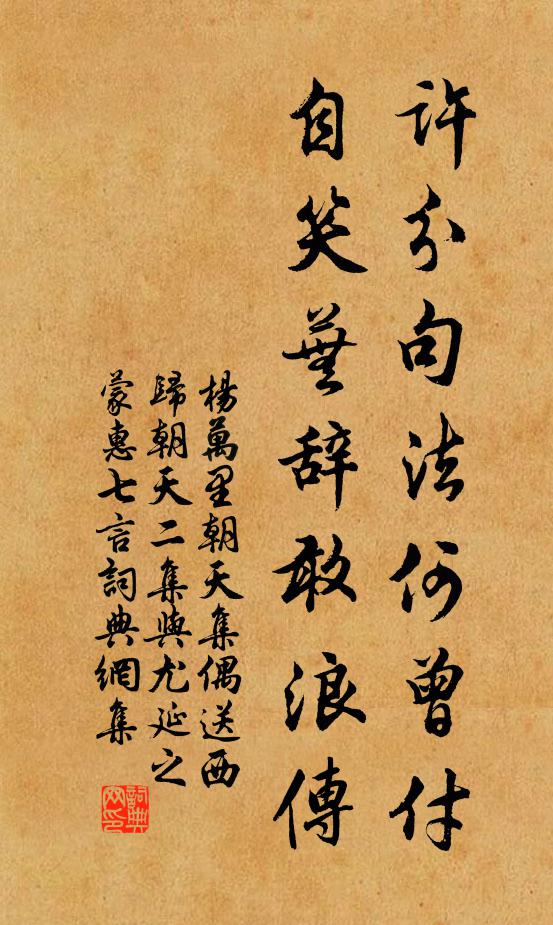 許分句法何曾付
自笑蕪辞敢浪傳
楊萬里朝天集偶送西
歸朝天二集與尤延之
蒙惠七言詞典網集
詞典
网印